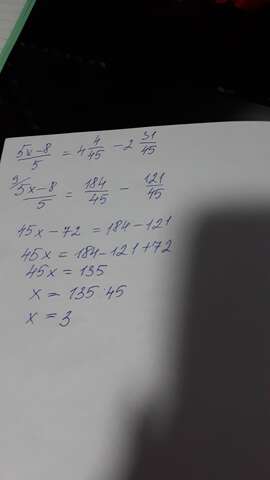 5x-8/5 = 4 4/45 - 2 31/45
9/ 5x-8/5 = 184/45 - 121/45
45x - 72 = 184 - 121
45x = 184 - 121 + 72
45x = 135
x = 135 45
x = 3